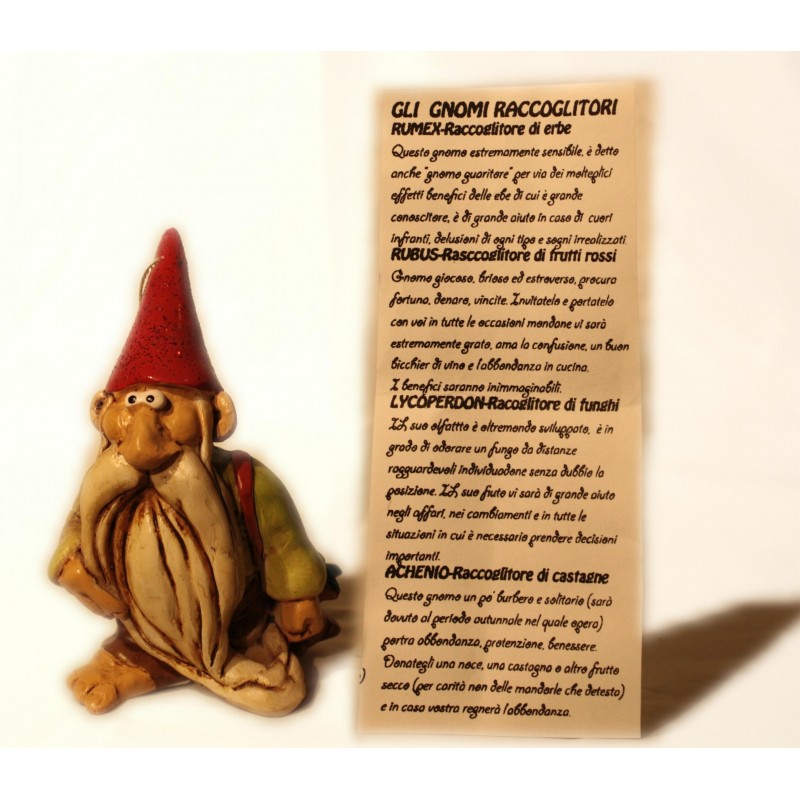 GLI GNOMI RACCOGLITORI
RUMEX-Raccoglitore di erbe
Questo gnomo estremamente sensibile, è detto
anche "gnomo guaritore" per via dei molteplici
effetti benefici delle ebe di cui è grande
conoscitore, è di grande aiuto in caso di cuori
infranti, delusioni di ogni tipo e sogni irrealizzati.
RUBUS-Rasccoglitore di frutti rossi
Gnomo giocoso, brioso ed estroverso, procura
fortuna, denaro, vincite. Invitatelo e portatelo
con voi in tutte le occasioni mondane vi sarà
estremamente grato, ama la confusione, un buon
bicchier di vino e l'abbondanza in cucina.
I benefici saranno inimmaginabili.
LYCOPERDON-Racoglitore di funghi
IL suo olfattto è oltremondo sviluppato, è in
grado di odorare un fungo da distanze
ragguardevoli individuadone senza dubbio la
posizione. IL suo fiuto vi sarà di grande aiuto
negli affari, nei cambiamenti e in tutte le
situazioni in cui è necessario prendere decisioni
importanti.
ACHENIO-Raccoglitore di castagne
Questo gnomo un po' burbero e solitario (sarà
dovuto al periodo autunnale nel quale opera)
portra abbondanza, protenzione, benessere.
Donategli una noce, una castagna o altro frutto
secco (per carità non delle mandorle che detesta)
e in casa vostra regnerà l'abbondanza.